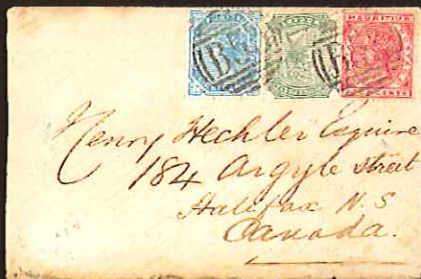 MAURITIUS
B53
Henry Hechler Esquire
184 Argyle Street
Halifax N.S
Canada.